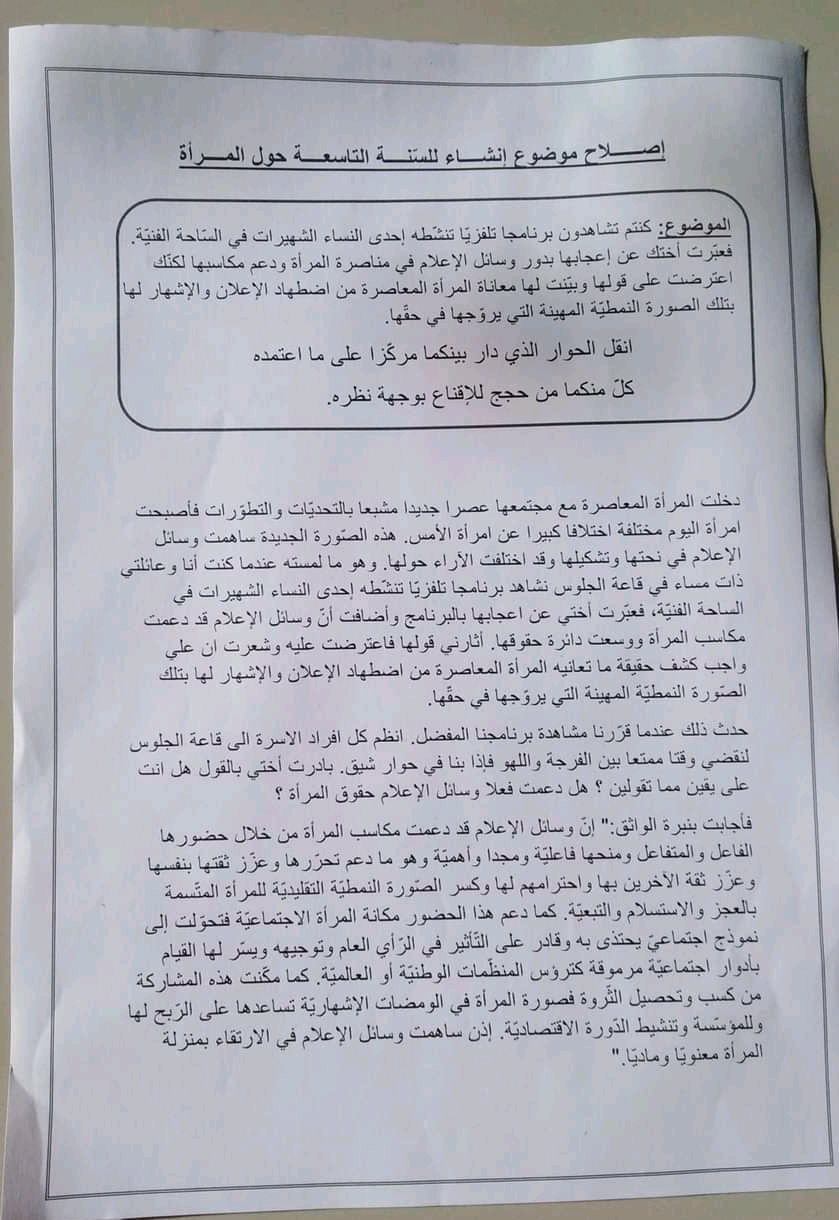 إصـــــلاح موضـوع إنشـــاء للسّنـــة التاسعـــة حول المـــرأة
الموضوع: كنتم تشاهدون برنامجا تلفزيّا تنشّطه إحدى النساء الشهيرات في السّاحة الفنيّة.
فعبّرت أختك عن إعجابها بدور وسائل الإعلام في مناصرة المرأة ودعم مكاسبها لكنّك
اعترضت على قولها وبيّنت لها معاناة المرأة المعاصرة من اضطهاد الإعلان والإشهار لها
بتلك الصورة النمطيّة المهينة التي يروّجها في حقّها.
انقل الحوار الذي دار بينكما مركّزا على ما اعتمده
كلّ منكما من حجج للإقناع بوجهة نظره.
دخلت المرأة المعاصرة مع مجتمعها عصرا جديدا مشبعا بالتحديّات والتطوّرات فأصبحت
امرأة اليوم مختلفة اختلافا كبيرا عن امرأة الأمس. هذه الصّورة الجديدة ساهمت وسائل
الإعلام في نحتها وتشكيلها وقد اختلفت الآراء حولها. وهو ما لمسته عندما كنت أنا وعائلتي
ذات مساء في قاعة الجلوس نشاهد برنامجا تلفزيّا تنشّطه إحدى النساء الشهيرات في
الساحة الفنيّة، فعبّرت أختي عن اعجابها بالبرنامج وأضافت أنّ وسائل الإعلام قد دعمت
مكاسب المرأة ووسعت دائرة حقوقها. أثارني قولها فاعترضت عليه وشعرت ان علي
واجب كشف حقيقة ما تعانيه المرأة المعاصرة من اضطهاد الإعلان والإشهار لها بتلك
الصّورة النمطيّة المهينة التي يروّجها في حقّها.
حدث ذلك عندما قرّرنا مشاهدة برنامجنا المفضل. انظم كل افراد الاسرة الى قاعة الجلوس
لنقضي وقتا ممتعا بين الفرجة واللهو فإذا بنا في حوار شيق. بادرت أختي بالقول هل انت
على يقين مما تقولين ؟ هل دعمت فعلا وسائل الإعلام حقوق المرأة ؟
فأجابت بنبرة الواثق:" إنّ وسائل الإعلام قد دعمت مكاسب المرأة من خلال حضورها
الفاعل والمتفاعل ومنحها فاعليّة ومجدا وأهميّة وهو ما دعم تحرّرها وعزّز ثقتها بنفسها
وعزّز ثقة الآخرين بها واحترامهم لها وكسر الصّورة النمطيّة التقليديّة للمرأة المتّسمة
بالعجز والاستسلام والتبعيّة. كما دعم هذا الحضور مكانة المرأة الاجتماعيّة فتحوّلت إلى
نموذج اجتماعيّ يحتذى به وقادر على التّأثير في الرّأي العام وتوجيهه ويسّر لها القيام
بأدوار اجتماعيّة مرموقة كترؤس المنظّمات الوطنيّة أو العالميّة. كما مكّنت هذه المشاركة
من كسب وتحصيل الثّروة فصورة المرأة في الومضات الإشهاريّة تساعدها على الرّبح لها
وللمؤسّسة وتنشيط الدّورة الاقتصاديّة. إذن ساهمت وسائل الإعلام في الارتقاء بمنزلة
المرأة معنويّا وماديّا."